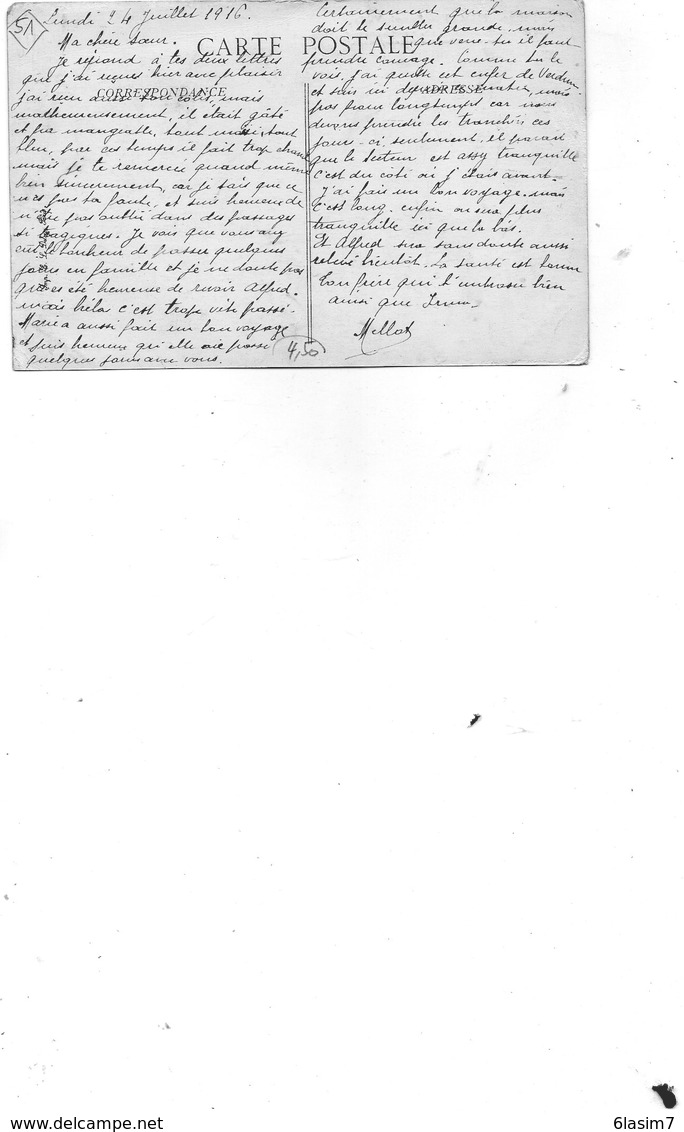 51
Lundi 24 Juillet 1916.
Ma chère Sœur.
CARTE POSTALE
CORRESPONDANCE
ADRESSE
Je répond à tes deux lettres
que j'ai reçues hier avec plaisir
j'ai reçu aussi ton colis, mais
malheureusement, il était gâté
et pas mangeable, tout moisi, tout
bleu, par ces temps il fait trop chaud
mais je te remercie quand même
bien sincèrement, car je sais que ce
n'es pas ta faute, et suis heureux de
n'être pas oublié dans des passages
si tragiques. Je vois que vous avez
eu le bonheur de passer quelques
jours en famille et je ne doute pas
que es été heureuse de revoir Alfred.
mais hélas c'est trop vite passé.
Maria a aussi fait un bon voyage
et suis heureux qu'elle aie passé
quelques jours avec vous.
4,50
Certainement que la maison
doit te sembler grande, mais
que veux-tu il faut
prendre courage. Comme tu le
vois, j'ai quitté cet enfer de Verdun
et suis ici depuis, mais
pas pour longtemps car nous
devons prendre les tranchées ces
jours-ci, seulement, il parait
que le secteur est assez tranquille
c'est du coté où j'étais avant.
J'ai fais un bon voyage. mais
c'est long. enfin on sera plus
tranquille ici que la bas.
Et Alfred sera sans doute aussi
relevé bientôt. La santé est bonne
Ton frère qui t'embrasse bien
ainsi que
6lasim7